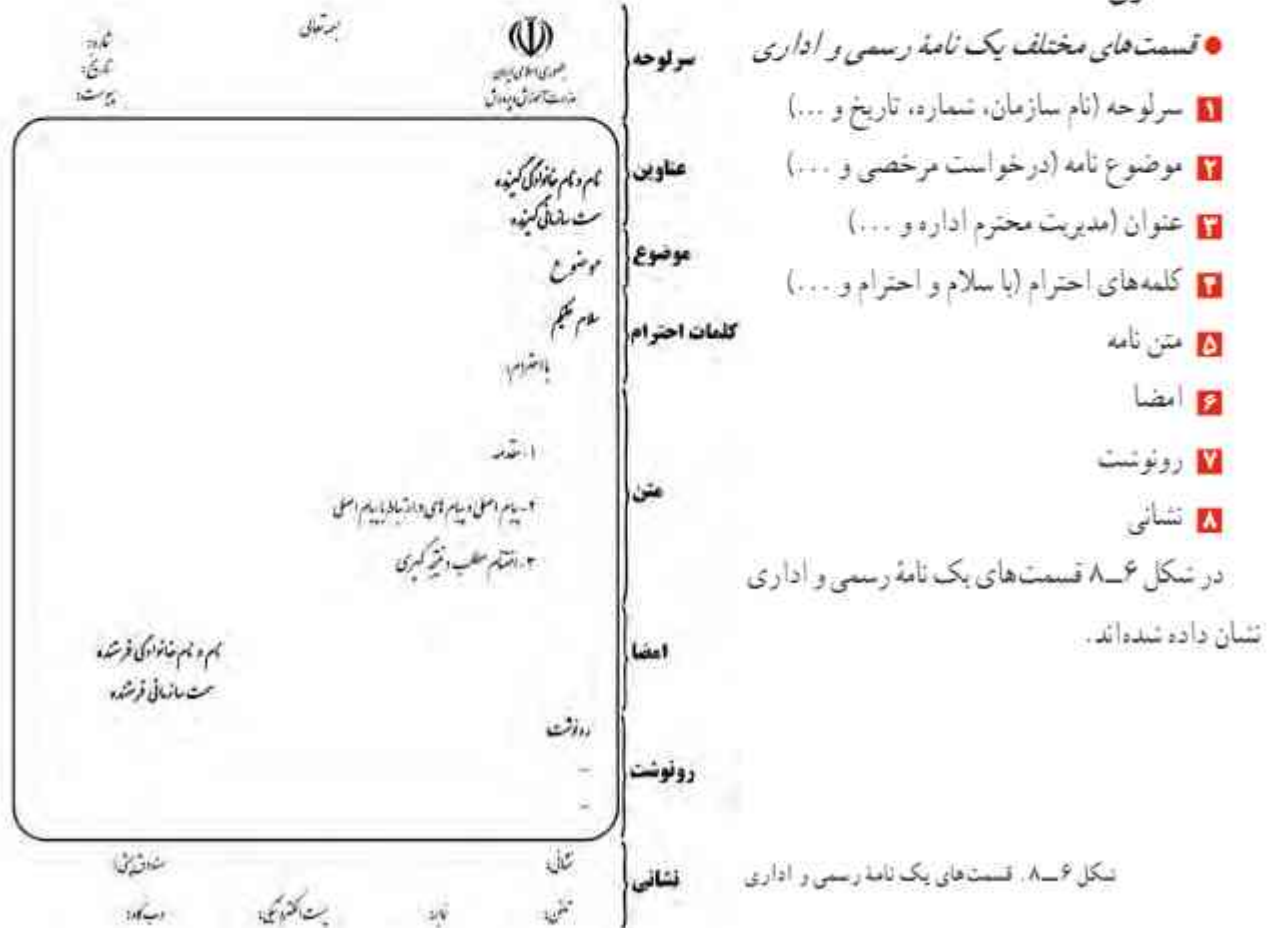 ● قسمت‌های مختلف یک نامهٔ رسمی و اداری
۱ سرلوحه (نام سازمان، شماره، تاریخ و ...)
۲ موضوع نامه (درخواست مرخصی و ...)
۳ عنوان (مدیریت محترم اداره و ...)
۴ کلمه‌های احترام (با سلام و احترام و ...)
۵ متن نامه
۶ امضا
۷ رونوشت
۸ نشانی
در شکل ۶ــ۸ قسمت‌های یک نامهٔ رسمی و اداری
نشان داده شده‌اند.
شکل ۶ــ۸. قسمت‌های یک نامهٔ رسمی و اداری
سرلوحه
عناوین
موضوع
کلمات احترام
متن
امضا
رونوشت
نشانی
بسمه تعالی
جمهوری اسلامی ایران
وزارت آموزش و پرورش
شماره:
تاریخ:
پیوست:
نام و نام خانوادگی گیرنده
سمت سازمانی گیرنده
موضوع
سلام علیکم
با احترام،
۱- مقدمه
۲- پیام اصلی و پیام های در ارتباط با پیام اصلی
۳- اختتام مطلب و نتیجه گیری
نام و نام خانوادگی فرستنده
سمت سازمانی فرستنده
رونوشت:
-
-
نشانی: صندوق پستی:
تلفن: نمابر: پست الکترونیکی: وب گاه: